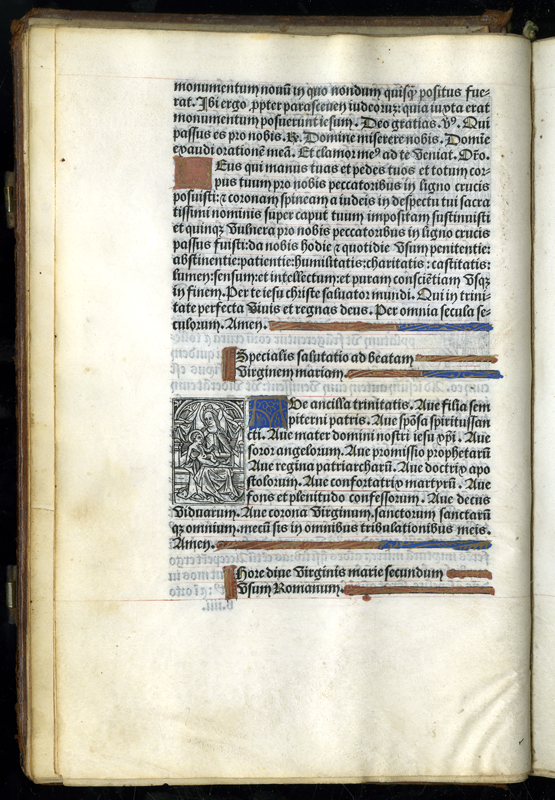 monumentum nouū in quo nondum quisq̄ positus fue-
rat. Ibi ergo ꝓpter parasceuen iudeoruꝫ: quia iuxta erat
monumentum posuerunt iesum. Deo gratias. v̄⁹. Qui
passus es pro nobis. ℟. Domine miserere nobis. Domīe
exaudi orationē meā. Et clamor me⁹ ad te veniat. Oro.
Eus qui manus tuas et pedes tuos et totum cor-
pus tuum pro nobis peccatoribus in ligno crucis
posuisti: ⁊ coronam spineam a iudeis in despectu tui sacra
tissimi nominis super caput tuum impositam sustinuisti
et quinqꝫ vulnera pro nobis peccatoribus in ligno crucis
passus fuisti: da nobis hodie ⁊ quotidie vsum penitentie:
abstinentie: patientie: humilitatis: charitatis: castitatis:
lumen: sensum: et intellectum: et puram consciētiam vsqꝫ
in finem. Per te iesu christe saluator mundi. Qui in trini-
tate perfecta viuis et regnas deus. Per omnia secula se-
culorum. Amen.
Specialis salutatio ad beatam
virginem mariam.
Ue ancilla trinitatis. Aue filia sem
piterni patris. Aue spōsa spiritussan
cti. Aue mater domini nostri iesu xp̄i. Aue
soror angelorum. Aue promissio prophetarū
Aue regina patriarcharū. Aue doctrix apo
stolorum. Aue confortatrix martyrū. Aue
fons et plenitudo confessorum. Aue decus
viduarum. Aue corona virginum, sanctorum sanctarū
qꝫ omnium. mecū sis in omnibus tribulationibus meis.
Amen.
Hore diue virginis marie secundum
vsum Romanum.